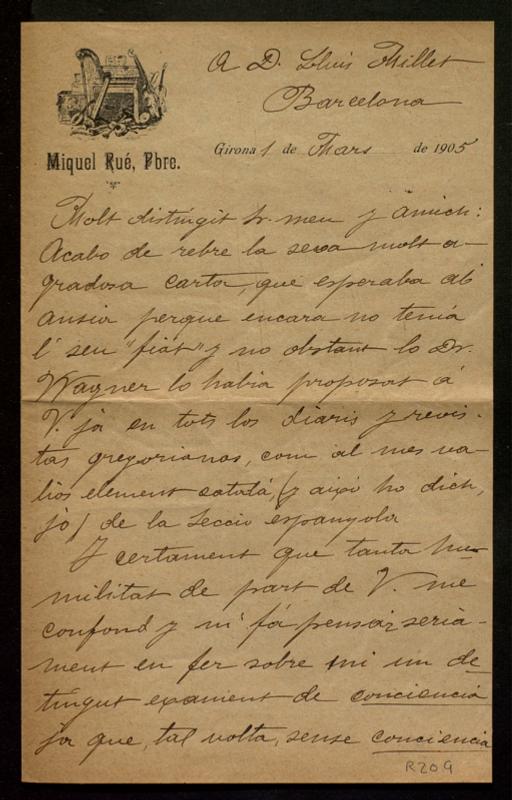 A D. Lluis Millet
Barcelona
Miquel Rué, Pbre.
Girona 1 de Mars de 1905
Molt distingit Sr. meu y amich:
Acabo de rebre la seva molt a-
gradosa carta, que esperaba ab
ansia perque encara no tenia
l' seu "fiat" y no obstant lo Dr.
Wagner lo habia proposat á
V. ja en tots los diaris y revis-
tas gregorianas, com al mes va-
lios element catalá, (y aixó ho dich
jo) de la Secció espanyola
Y certament que tanta hu-
militat de part de V. me
confond y m' fá pensar seria-
ment en fer sobre mi un de-
tingut exament de conciencia
ja que, tal volta, sense conciencia
R209